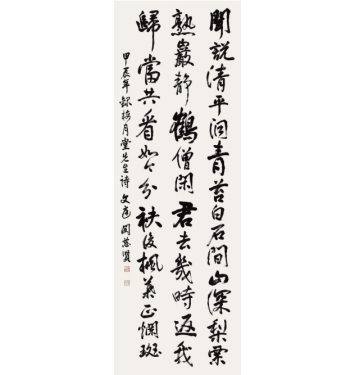 聞說清平洞青苔白石間山深梨栗
熟巖靜鶴僧閑君去幾時返我
歸當共看如今分袂後楓葉正斕斑
甲辰年錄梅月堂先生詩